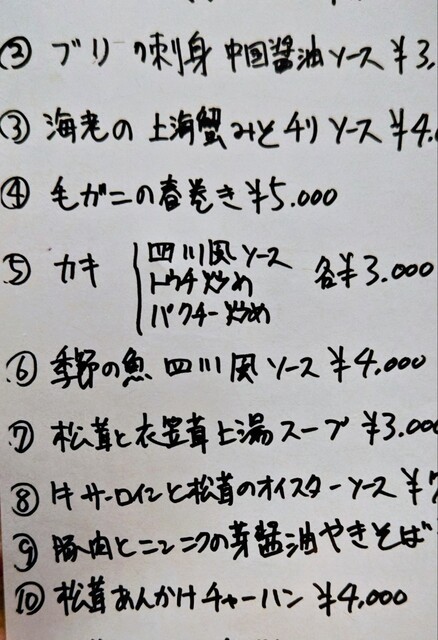 ② ブリの刺身 中国醤油ソース ¥3,
③ 海老の上海蟹みそチリソース ¥4,
④ 毛ガニの春巻き ¥5.000
⑤ カキ 四川風ソース 各¥3.000
トウチ炒め
パクチー炒め
⑥ 季節の魚 四川風ソース ¥4,000
⑦ 松茸と衣笠茸上湯スープ ¥3.000
⑧ サーロインと松茸のオイスターソース ¥7
⑨ 豚肉とニンニクの芽醤油やきそば
⑩ 松茸あんかけチャーハン ¥4,000